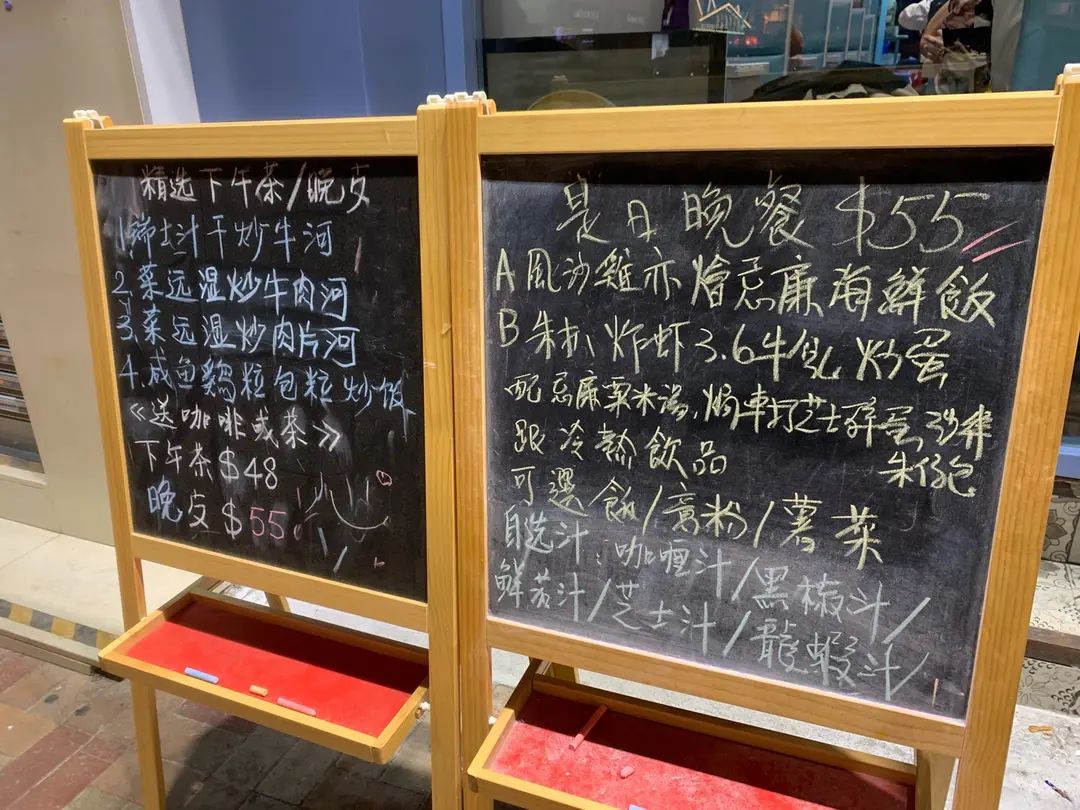 精选下午茶/晚支
1.稀士汁干炒牛河
2.菜远湿炒牛肉河
3.菜远湿炒肉片河
4.咸鱼鷄粒包粒炒饭
《送咖啡或茶》
下午茶$48
晚支$55
是日晚餐$55
A風沙雞亦燴忌廉海鮮飯
B朱扒炸虾3.6牛仔炒蛋
配忌廉粟米湯,焗車打芝士碎蛋沙律
朱仔包
跟冷熱飲品
可選飯/意粉/薯菜
自选汁:咖喱汁/黑椒汁/
鮮茄汁/芝士汁/龍蝦汁/